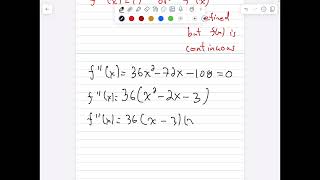 or
efined
but f(x) is
continuous
f"(x) = 36x² - 72x - 108 = 0
f"(x) = 36(x² - 2x - 3)
f"(x) = 36(x - 3)(